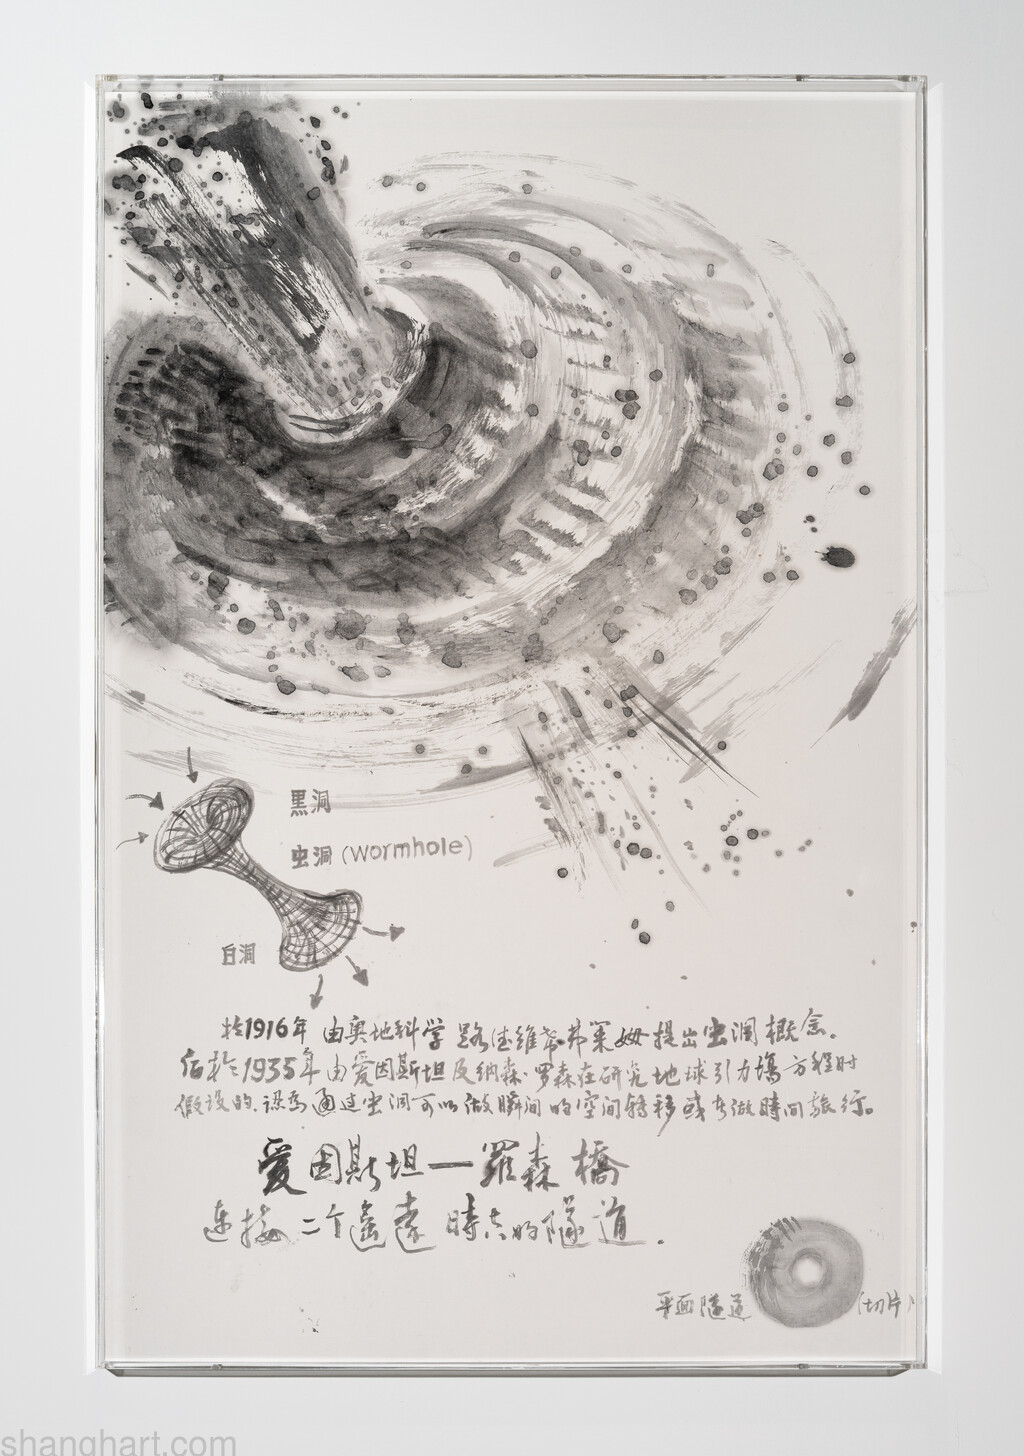 黑洞
虫洞 (wormhole)
白洞
於1916年 由奥地科学 路德維希弗莱姆提出虫洞概念.
后於1935年由爱因斯坦及纳森·罗森在研究地球引力場方程时
假设的、認為通过虫洞可以做瞬间的空间转移或者做時间旅行。
爱因斯坦一羅森橋
连接二个遙遠時空的隧道.
平面隧道 (切片)
shanghart.com